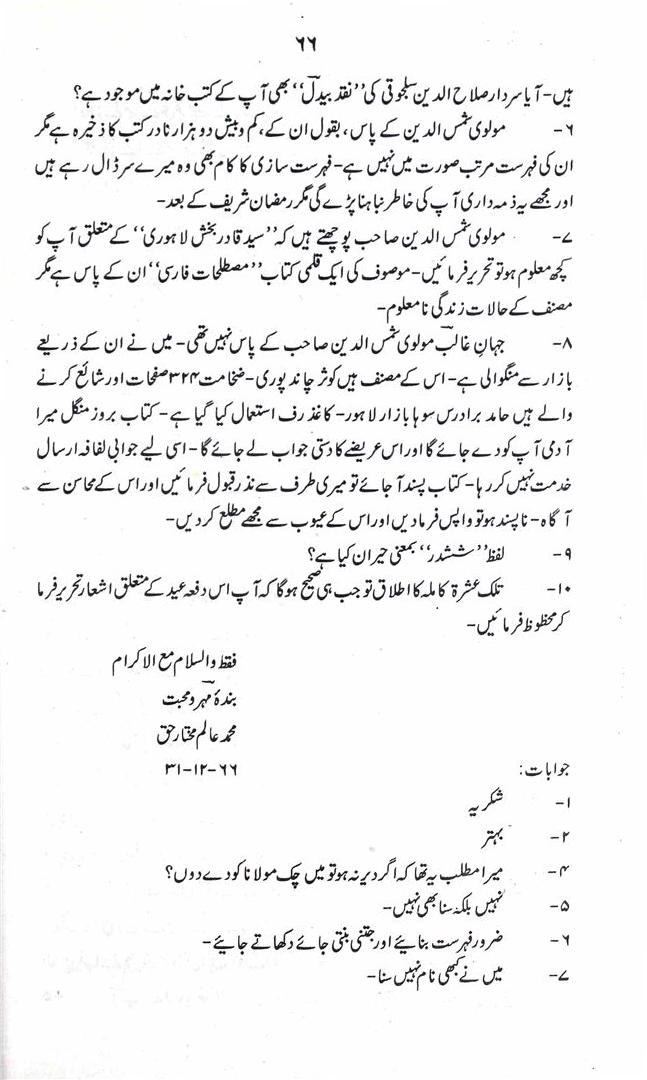 ۶۶
ہیں۔ آیا سردار صلاح الدین سلجوقی کی ”نقدِ بیدل“ بھی آپ کے کتب خانہ میں موجود ہے؟
۶- مولوی شمس الدین کے پاس، بقول ان کے، کم و بیش دو ہزار نادر کتب کا ذخیرہ ہے مگر
ان کی فہرست مرتب صورت میں نہیں ہے۔ فہرست سازی کا کام بھی وہ میرے سر ڈال رہے ہیں
اور مجھے یہ ذمہ داری آپ کی خاطر نباہنا پڑے گی مگر رمضان شریف کے بعد۔
۷- مولوی شمس الدین صاحب پوچھتے ہیں کہ ”سید قادر بخش لاہوری“ کے متعلق آپ کو
کچھ معلوم ہو تو تحریر فرمائیں۔ موصوف کی ایک قلمی کتاب ”مصطلحات فارسی“ ان کے پاس ہے مگر
مصنف کے حالات زندگی نامعلوم۔
۸- جہانِ غالب مولوی شمس الدین صاحب کے پاس نہیں تھی۔ میں نے ان کے ذریعے
بازار سے منگوالی ہے۔ اس کے مصنف ہیں کوثر چاند پوری۔ ضخامت ۳۲۴ صفحات اور شائع کرنے
والے ہیں حامد برادرس سوہا بازار لاہور۔ کاغذ رف استعمال کیا گیا ہے۔ کتاب بروز منگل میرا
آدمی آپ کو دے جائے گا اور اس عریضے کا دستی جواب لے جائے گا۔ اسی لیے جوابی لفافہ ارسال
خدمت نہیں کر رہا۔ کتاب پسند آ جائے تو میری طرف سے نذر قبول فرمائیں اور اس کے محاسن سے
آگاہ۔ ناپسند ہو تو واپس فرما دیں اور اس کے عیوب سے مجھے مطلع کر دیں۔
۹- لفظ ”ششدر“ بمعنی حیران کیا ہے؟
۱۰- تلک عشرۃ کاملہ کا اطلاق تو جب ہی صحیح ہوگا کہ آپ اس دفعہ عید کے متعلق اشعار تحریر فرما
کر محظوظ فرمائیں۔
فقط والسلام مع الاکرام
بندۂ مہر و محبت
محمد عالم مختار حق
۳۱-۱۲-۶۶
جوابات:
۱- شکریہ
۲- بہتر
۴- میرا مطلب یہ تھا کہ اگر دیر نہ ہو تو میں چک مولانا کو دے دوں؟
۵- نہیں بلکہ سنا بھی نہیں۔
۶- ضرور فہرست بنائیے اور جتنی بنتی جائے دکھاتے جائیے۔
۷- میں نے کبھی نام نہیں سنا۔